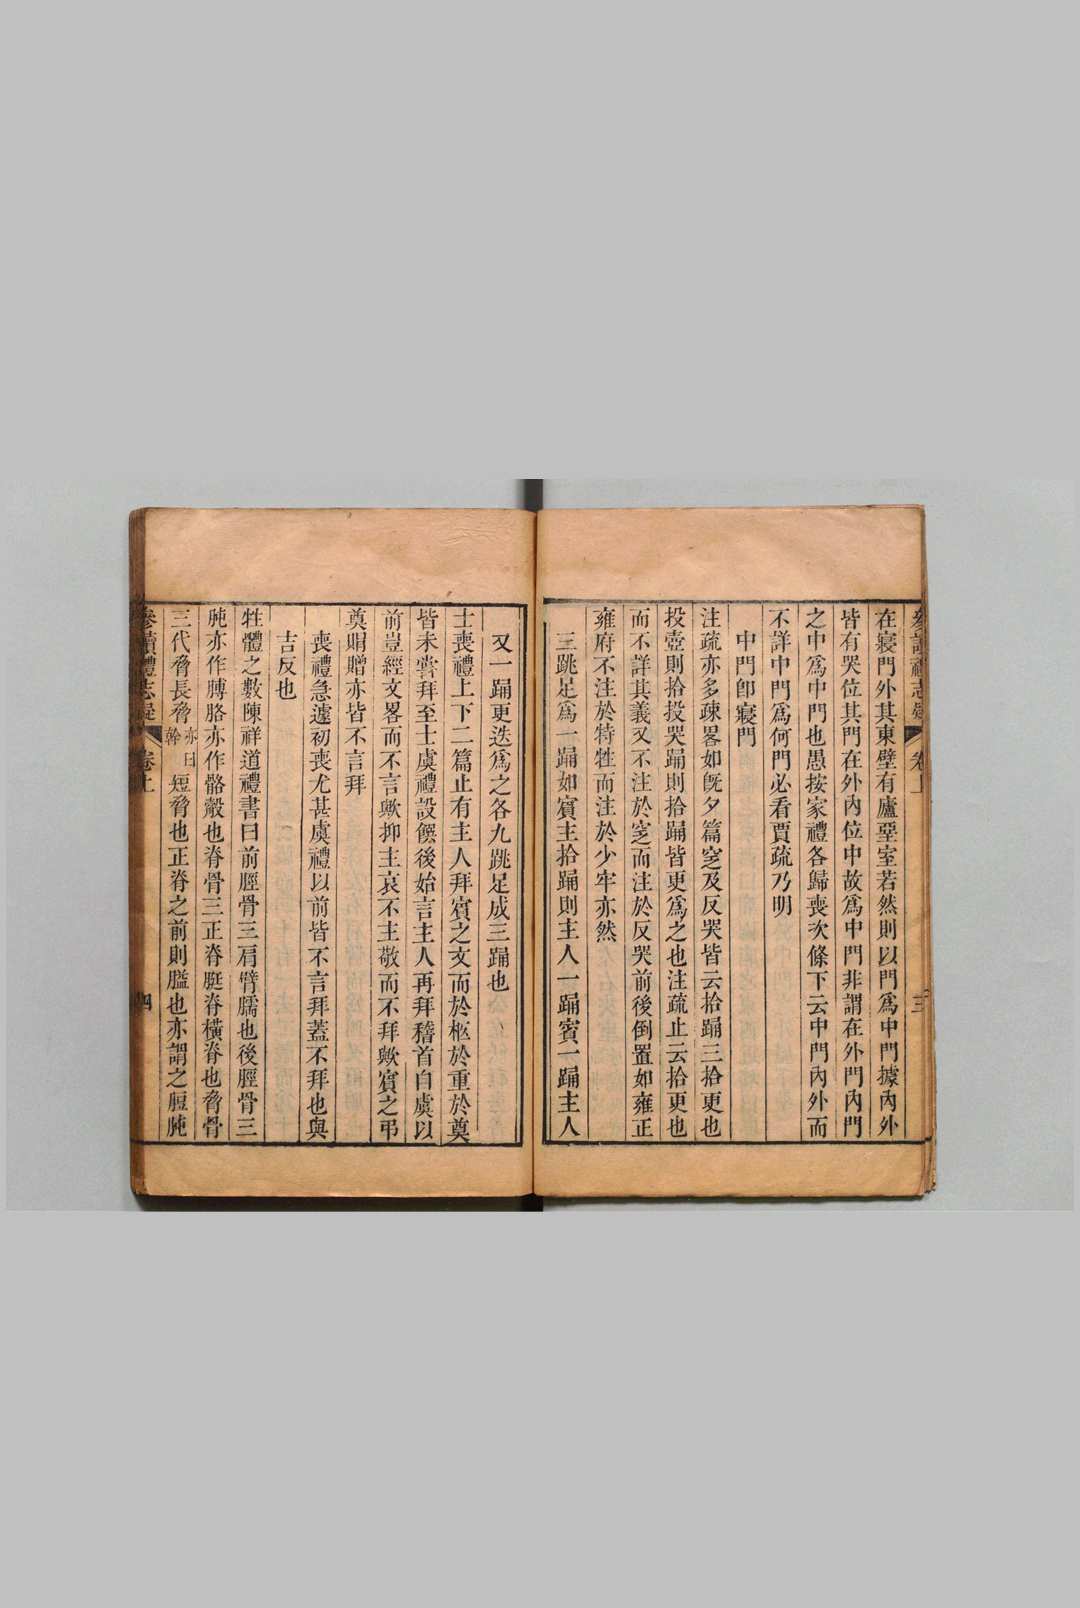 參讀禮志疑 卷上 三
在寢門外其東壁有廬堊室若然則以門爲中門據內外
皆有哭位其門在外內位中故爲中門非謂在外門內門
之中爲中門也愚按家禮各歸喪次條下云中門內外而
不詳中門爲何門必看賈疏乃明
中門卽寢門
注疏亦多疎畧如旣夕篇窆及反哭皆云拾踊三拾更也
投壺則拾投哭踊則拾踊皆更爲之也注疏止云拾更也
而不詳其義又不注於窆而注於反哭前後倒置如雍正
雍府不注於特牲而注於少牢亦然
三跳足爲一踊如賓主拾踊則主人一踊賓一踊主人
又一踊更迭爲之各九跳足成三踊也
士喪禮上下二篇止有主人拜賓之文而於柩於重於奠
皆未嘗拜至士虞禮設饌後始言主人再拜稽首自虞以
前豈經文畧而不言歟抑主哀不主敬而不拜歟賓之弔
奠賵贈亦皆不言拜
喪禮急遽初喪尤甚虞禮以前皆不言拜蓋不拜也與
吉反也
牲體之數陳祥道禮書曰前脛骨三肩臂臑也後脛骨三
肫亦作膊胳亦作骼觳也脊骨三正脊脡脊橫脊也脅骨
三代脅長脅亦曰幹短脅也正脊之前則膉也亦謂之脰肫
參讀禮志疑 卷上 四